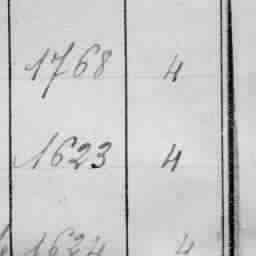 1768 4
1623 4
1624 4